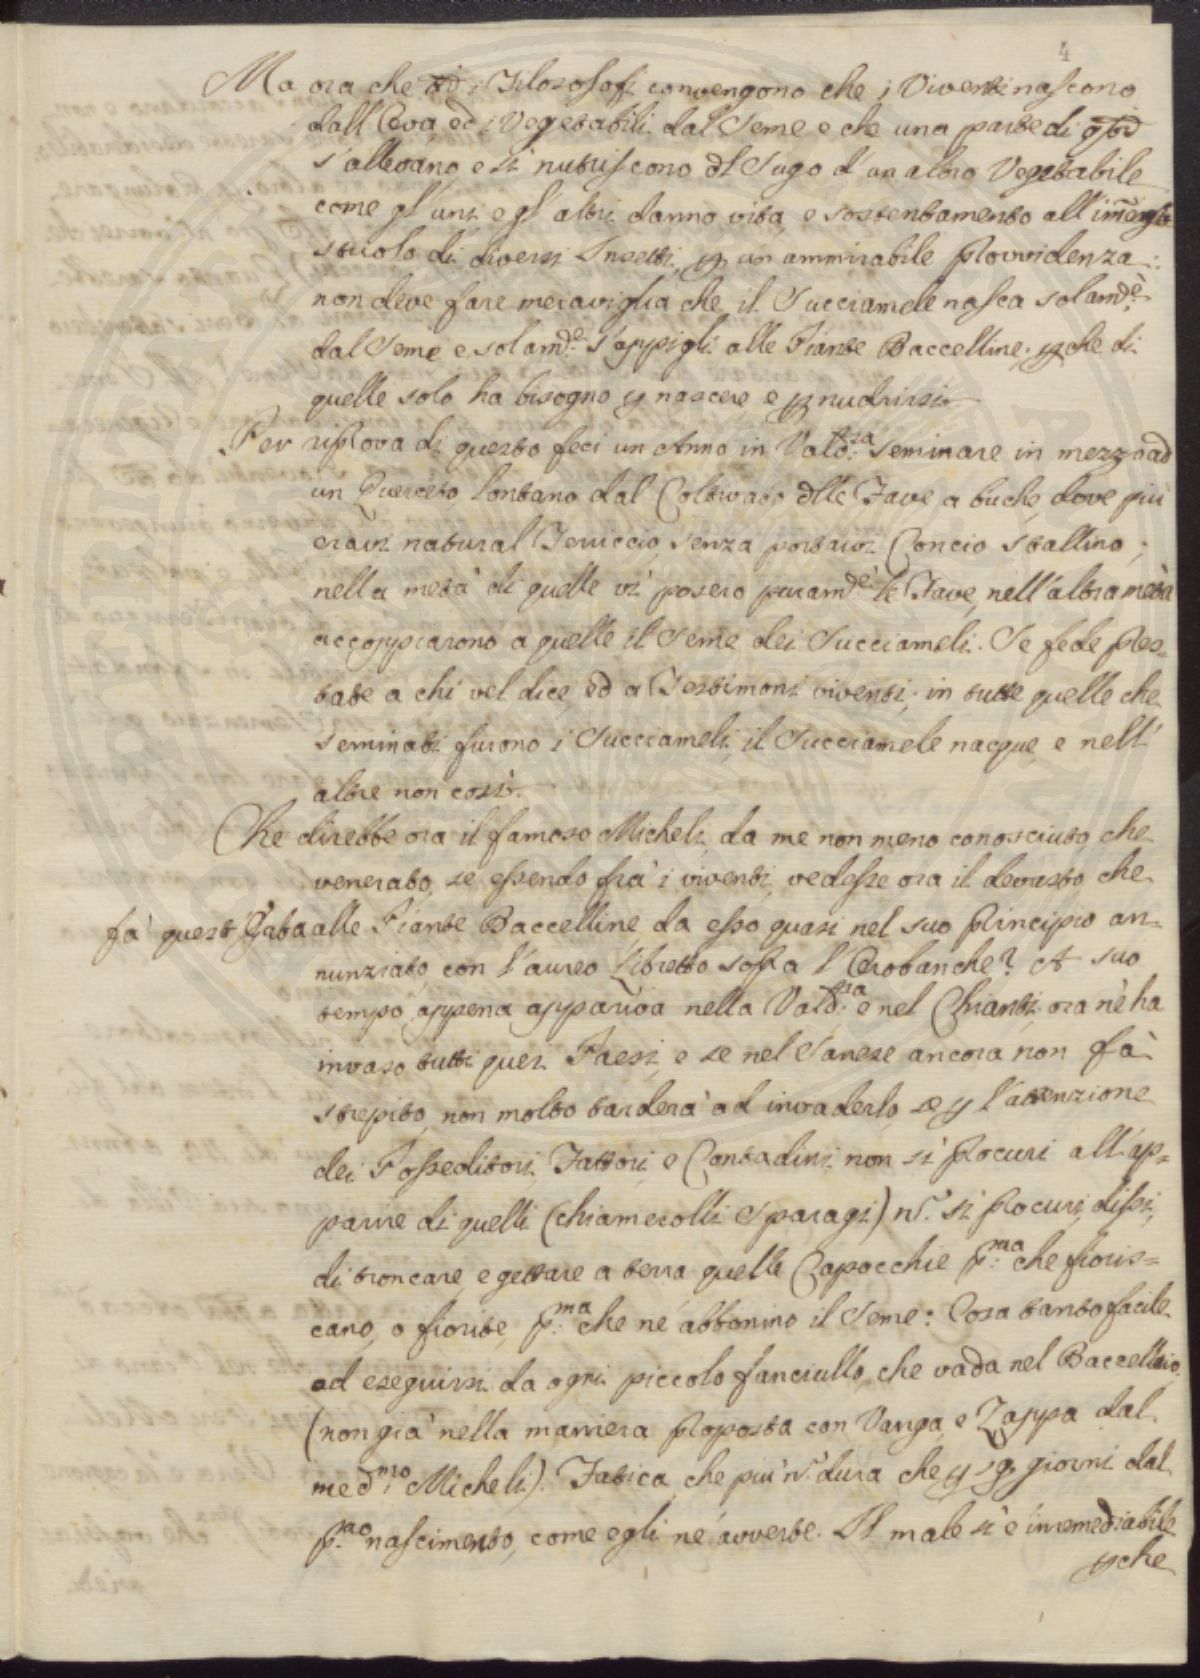 4
Ma ora che i Filosofi convengono che i Viventi nascono
dall'Ova, ed i Vegetabili dal Seme e che una parte di qti
s'allevano e si nutriscono dl Sugo d'un altro Vegetabile
come gl'uni, e gl'altri danno vita, e sostentamento all'imenso
stuolo di diversi Insetti, p un ammirabile Provvidenza:
non deve fare meraviglia che il Succiamele nasca solamde
dal Seme e solamde s'appigli alle Piante Baccelline, pche di
quelle solo ha bisogno p nascere, e p nudrirsi.
Per riprova di questo feci un Anno in Vald:sa seminare in mezzo ad
un Querceto lontano dal Coltivato dlle Fave a buche, dove più
eravi natural Teruccio, senza portarvi Concio stallino;
nella metà di quelle vi posero puramde le Fave, nell'altra metà
accoppiarono a quelle il Seme dei Succiameli. Se fede pres=
tate a chi vel dice, ed a Testimoni viventi, in tutte quelle che
seminati furono i Succiameli, il Succiamele nacque, e nell'
altre non così.
Che direbbe ora il famoso Micheli, da me non meno conosciuto, che
venerato, se essendo frà i viventi, vedesse ora il devasto, che
fà quest'Erba alle Piante Baccelline da esso quasi nel suo Principio an=
nunziato, con l'aureo Libretto sopra l'Orobanche? A suo
tempo appena appariva nella Vald:sa e nel Chianti, ora n'è ha
invaso tutti quei Paesi, e se nel Sanese ancora non fà
strepito, non molto tarderà ad invaderlo, se p l'attenzione
dei Posseditori, Fattori, e Contadini non si procuri all'ap=
parire di quelli (chiamerolli Sparagi) n. si procuri, dissi,
di troncare, e gettare a terra quelle Capocchie p:ma che fioris=
cano, o fiorite, p:ma che ne abbonino il Seme: Cosa tanto facile
ad eseguirsi da ogni piccolo fanciullo, che vada nel Baccellaio
(non già nella maniera proposta con Vanga, e Zappa dal
med:mo Micheli). Fatica, che più n. dura che p giorni dal
p:mo nascimento, come egli ne avverte. Il male si è irremediabile
pche